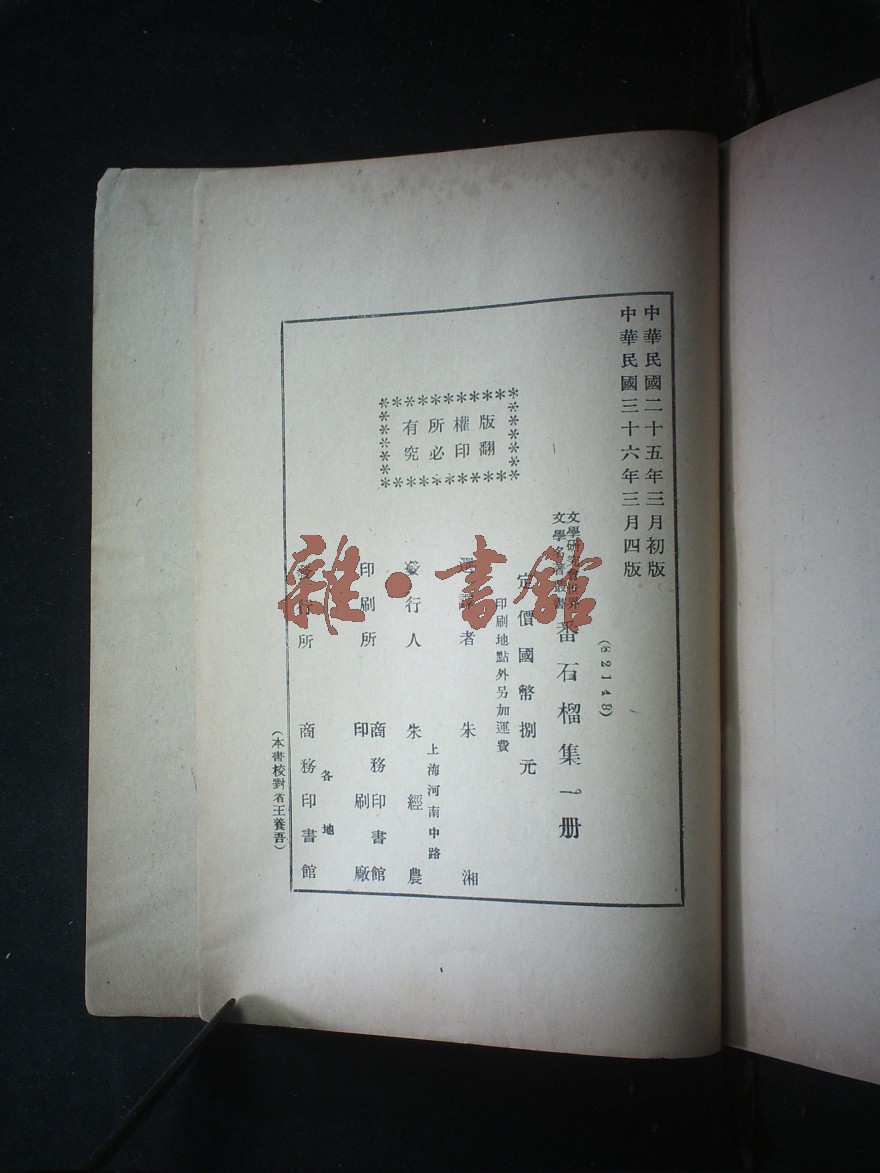 中華民國二十五年三月初版
中華民國三十六年三月四版
(82148)
文學研究會世界
文學名著叢書
番石榴集一册
定價國幣捌元
印刷地點外另加運費
版權所有
翻印必究
選譯者 朱湘
上海河南中路
發行人 朱經農
印刷所 商務印書館
印刷廠
各地
發行所 商務印書館
(本書校對者王養吾)
雜·書館